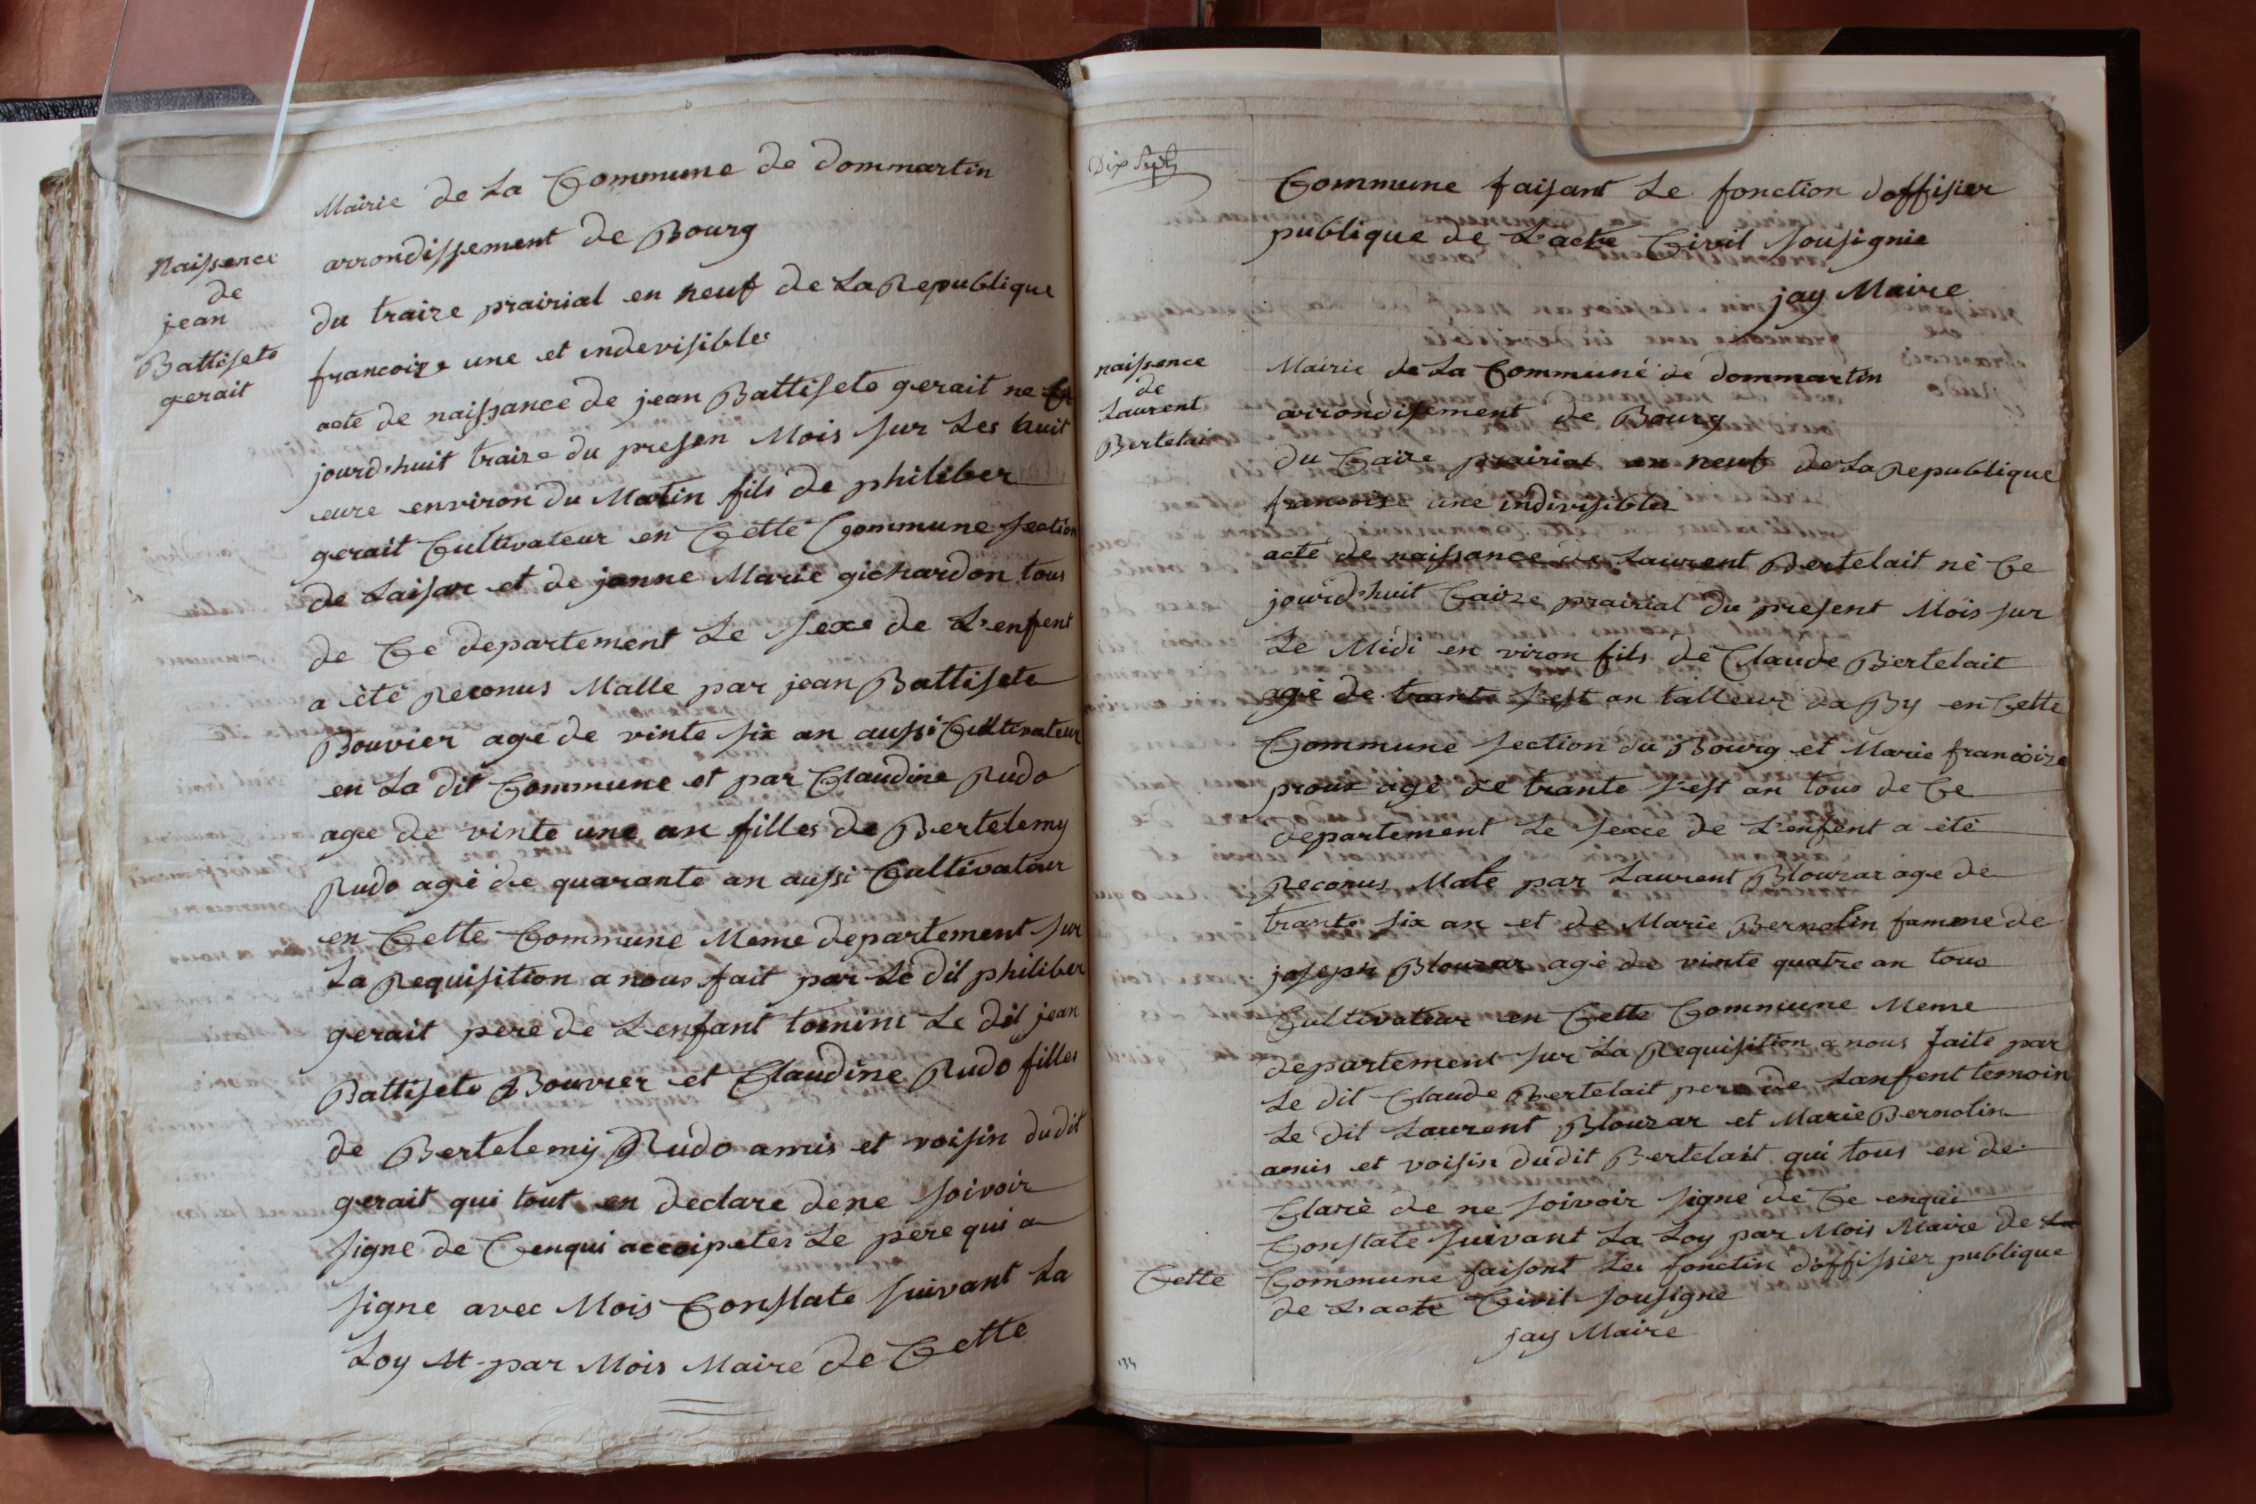 Mairie de La Commune de dommartin
arrondissement de Bourg
Naissence
de
jean
Battisete
gerait
du traize prairial en neuf de La Republique
francoize une et indevisibles
acte de naissance de jean Battisete gerait ne Ce
jourd'huit traize du presen Mois sur Les huit
eure environ du Matin fils de philiber
gerait Cultivateur en Cette Commune section
de Laisar et de janne Marie gichardon tous
de Ce departement Le sexe de L'enfent
a été Reconus Malle par jean Battisete
Bouvier age de vinte six an aussi Cultivateur
en La dit Commune et par Claudine Rudo
agee de vinte une an filles de Bertelemy
Rudo agé de quarante an aussi Cultivateur
en Cette Commune Meme departement sur
La Requisition a nous fait par Le dit philiber
gerait pere de L'enfant tomine Le dit jean
Battisete Bouvier et Claudine Rudo filles
de Bertelemy Rudo amis et voisin dudit
gerait qui tout en declare dene soivoir
signe de Cenqui accoipetes Le pere qui a
signe avec Mois Constate suivant La
Loy et par Mois Maire de Cette
Dix Sept
Commune faisant Le fonction d'offisier
publique de L'acte Civil sousignie
jay Maire
naissence
de
Laurent
Bertelai
Mairie de La Commune de dommartin
arrondisement de Bourg
du Caize prairial an neuf de La Republique
francoize une indivisibles
acte de naissance de Laurent Bertelait né Ce
jourd'huit Caize prairial du present Mois sur
Le Midi en viron fils de Claude Bertelait
agé de trante sest an talleur da By en Cette
Commune section du Bourg et Marie francoize
proux age de trante sest an tous de Ce
departement Le sexe de L'enfent a été
Reconus Male par Laurent Blouzar age de
trante six an et de Marie Bernolin famme de
joseph Blouzar agé de vinte quatre an tous
Cultivateur en Cette Commune Meme
departement sur La Requisition a nous faite par
Le dit Claude Bertelait pere de Lanfent temoin
Le dit Laurent Blouzar et Marie Bernolin
amis et voisin dudit Bertelait qui tous en de
Claré de ne soivoir signe de Ce enqui
Constate suivant La Loy par Mois Maire de La
Cette
Commune faisont Les fonctin d'offissier publique
de L'acte Civil sousigne
jay Maire
134